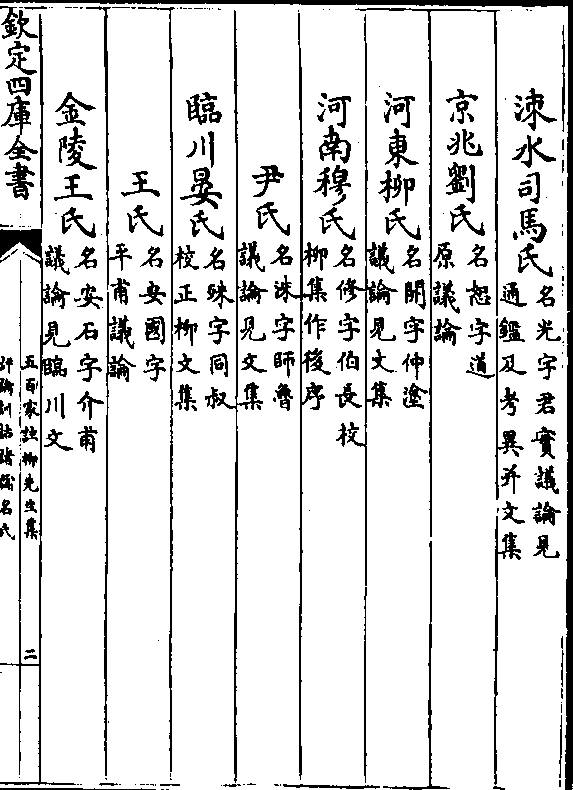 涑水司馬氏名光字君實議論見
通鑑及考異并文集
京兆劉氏名恕字道
原議論
河東柳氏名開字仲塗
議論見文集
河南穆氏名修字伯長校
柳集作後序
尹氏名洙字師魯
議論見文集
臨川晏氏名殊字同叔
校正柳文集
王氏名安國字
平甫議論
金陵王氏名安石字介甫
議論見臨川文
欽定四庫全書
五百家註柳先生集
評論訓詁諸儒名氏
二